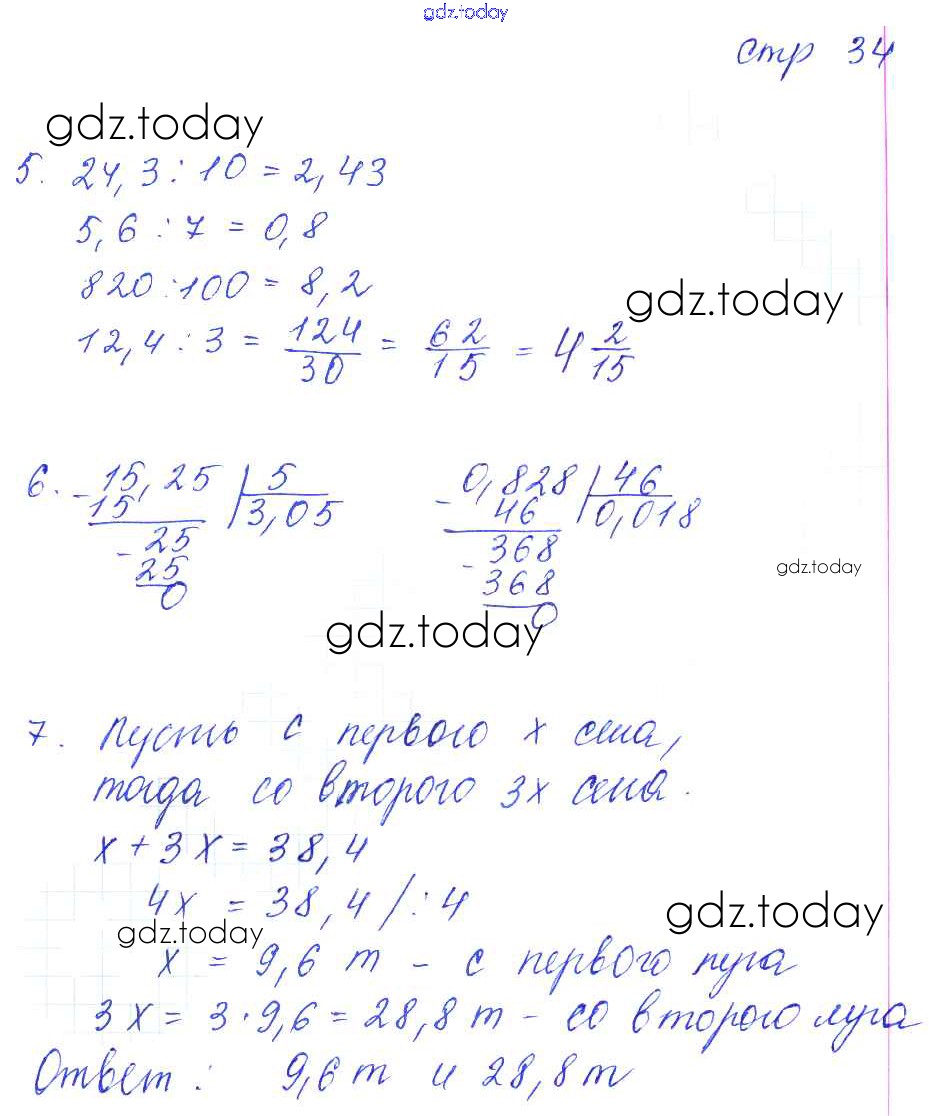 gdz.today
стр 34
gdz.today
5. 24,3 : 10 = 2,43
5,6 : 7 = 0,8
820 : 100 = 8,2
gdz.today
12,4 : 3 = 124/30 = 62/15 = 4 2/15
6. - 15,25 | 5 - 0,828 | 46
15 3,05 46 0,018
- 25 - 368
25 368
0 0
gdz.today
gdz.today
7. Пусть с первого x сена,
тогда со второго 3x сена.
x + 3x = 38,4
4x = 38,4 /: 4
gdz.today
gdz.today
x = 9,6 т - с первого луга
3x = 3 · 9,6 = 28,8 т - со второго луга
Ответ: 9,6 т и 28,8 т